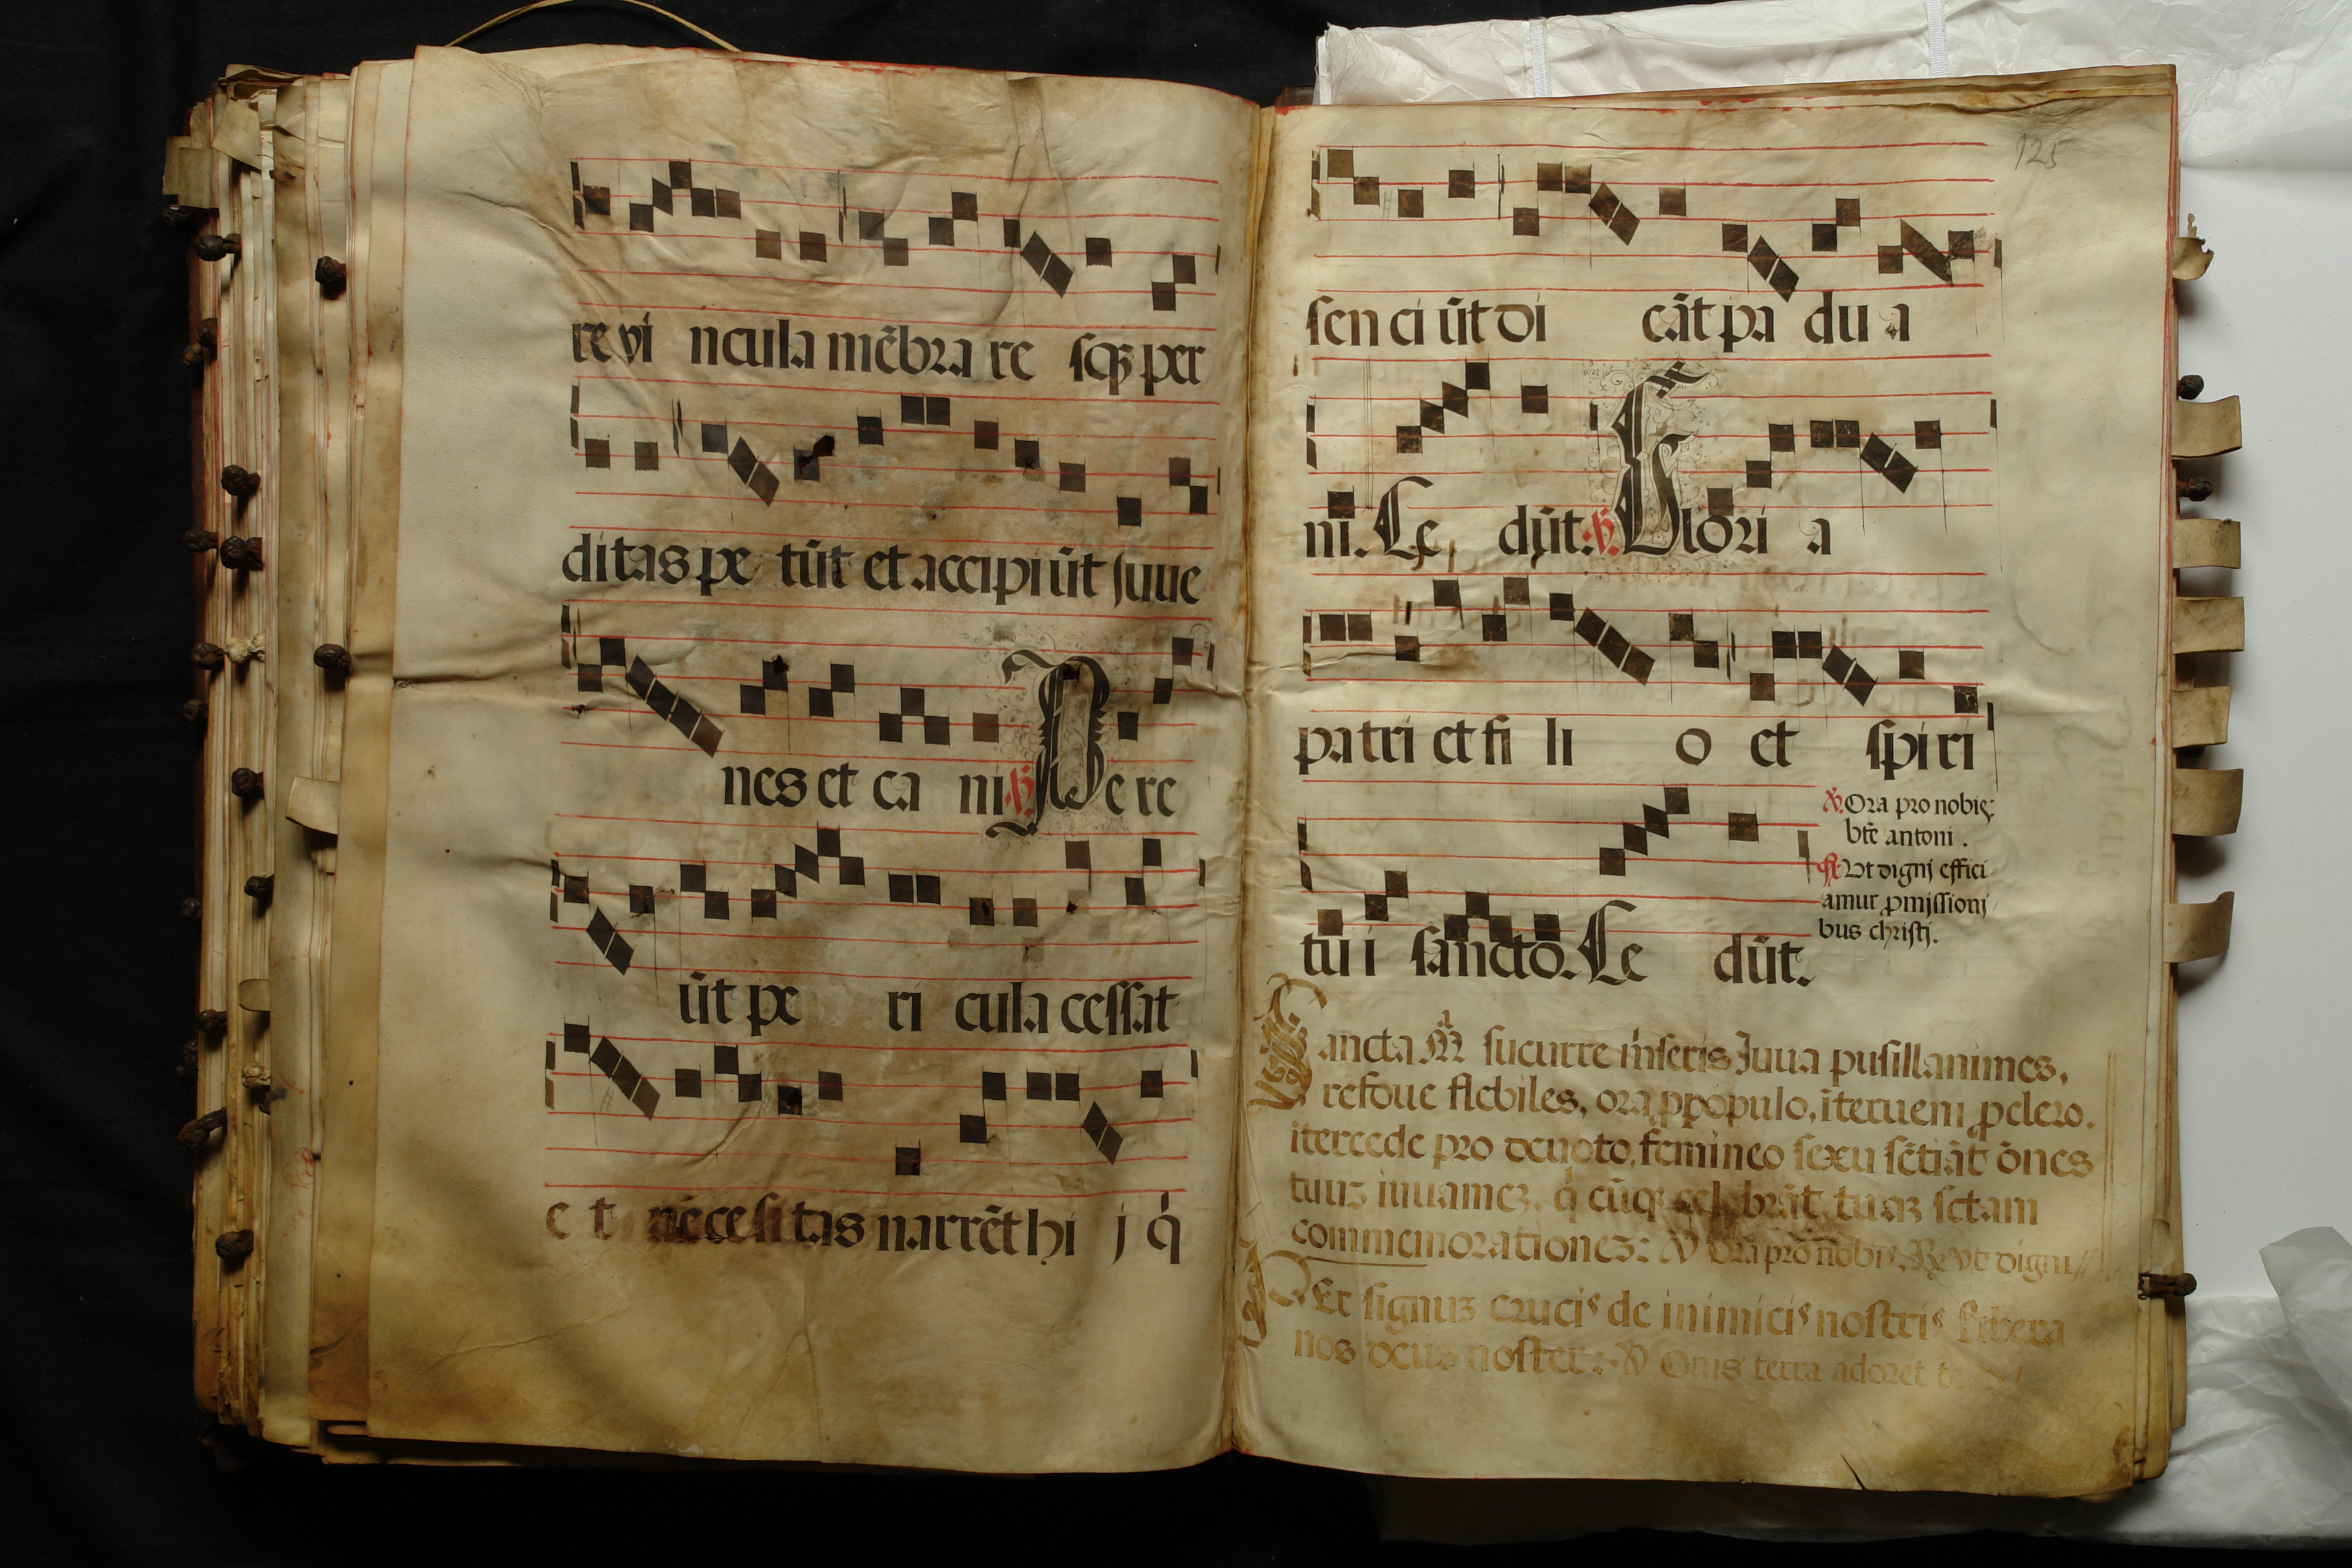 re vi ncula mēbra re sqꝫ per
ditas pe tūt et accipiūt juue
nes et ca ni ℣. Pe re
ūt pe ri cula cessat
e t necesitas narrēt hi j q̇
125
sen ci ūt di cāt pa du a
ni. Ce dūt. ℣. Glori a
patri et fi li o et spiri
tu i sancto. Ce dūt.
℣. Ora pro nobis
bt̄e antoni.
℟. Vt digni effici
amur ꝓmissioni
bus christi.
Sancta Mᵃ sucurre miseris Juua pusillanimes,
refoue flebiles, ora p populo, īterueni ꝓ clero.
itercede pro deuoto femineo sexu sētiāt ōnes
tuuꝫ iuuameꝫ, q cūqꝫ celebrāt tuaꝫ sctam
commemorationeꝫ: ℣ Ora prō nobis, ℟ vt digni
Per signuꝫ crucis de inimicis nostris libera
nos deus noster: ℣ Onis terra adoret te